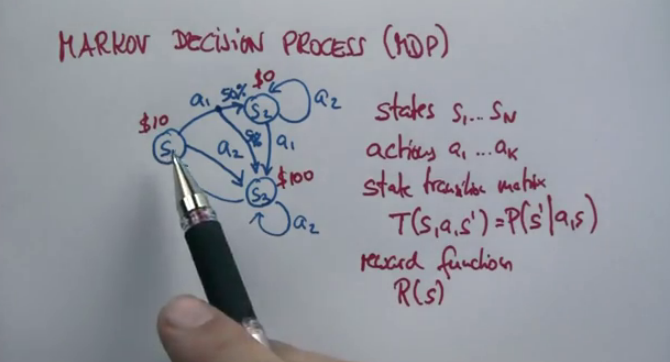 MARKOV DECISION PROCESS (MDP)
$0
a₁ 50% S₂ a₂
$10
S
5% a₁
a₂
S₂ $100
a₂
states S₁...S_N
actions a₁...a_K
state transition matrix
T(s,a,s')=P(s'|a,s)
reward function
R(s)